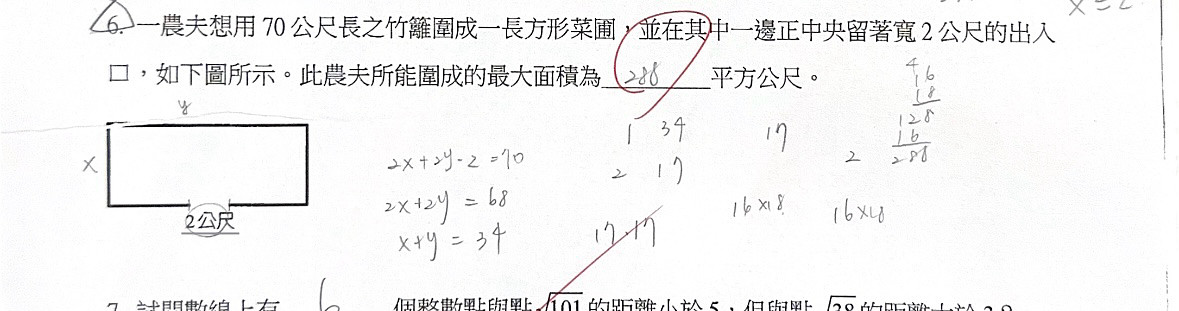 x = 2
6. 一農夫想用 70 公尺長之竹籬圍成一長方形菜圃，並在其中一邊正中央留著寬 2 公尺的出入
口，如下圖所示。此農夫所能圍成的最大面積為 288 平方公尺。
y
x
2公尺
2x+2y-2=70
2x+2y = 68
x+y = 34
1 34
2 17
17·17
17
16×18
2
16×18
4
16
18
128
16
288
7. 試問數線上有 6 個整數點與點 √101 的距離小於 5，但與點 √38 的距離大於